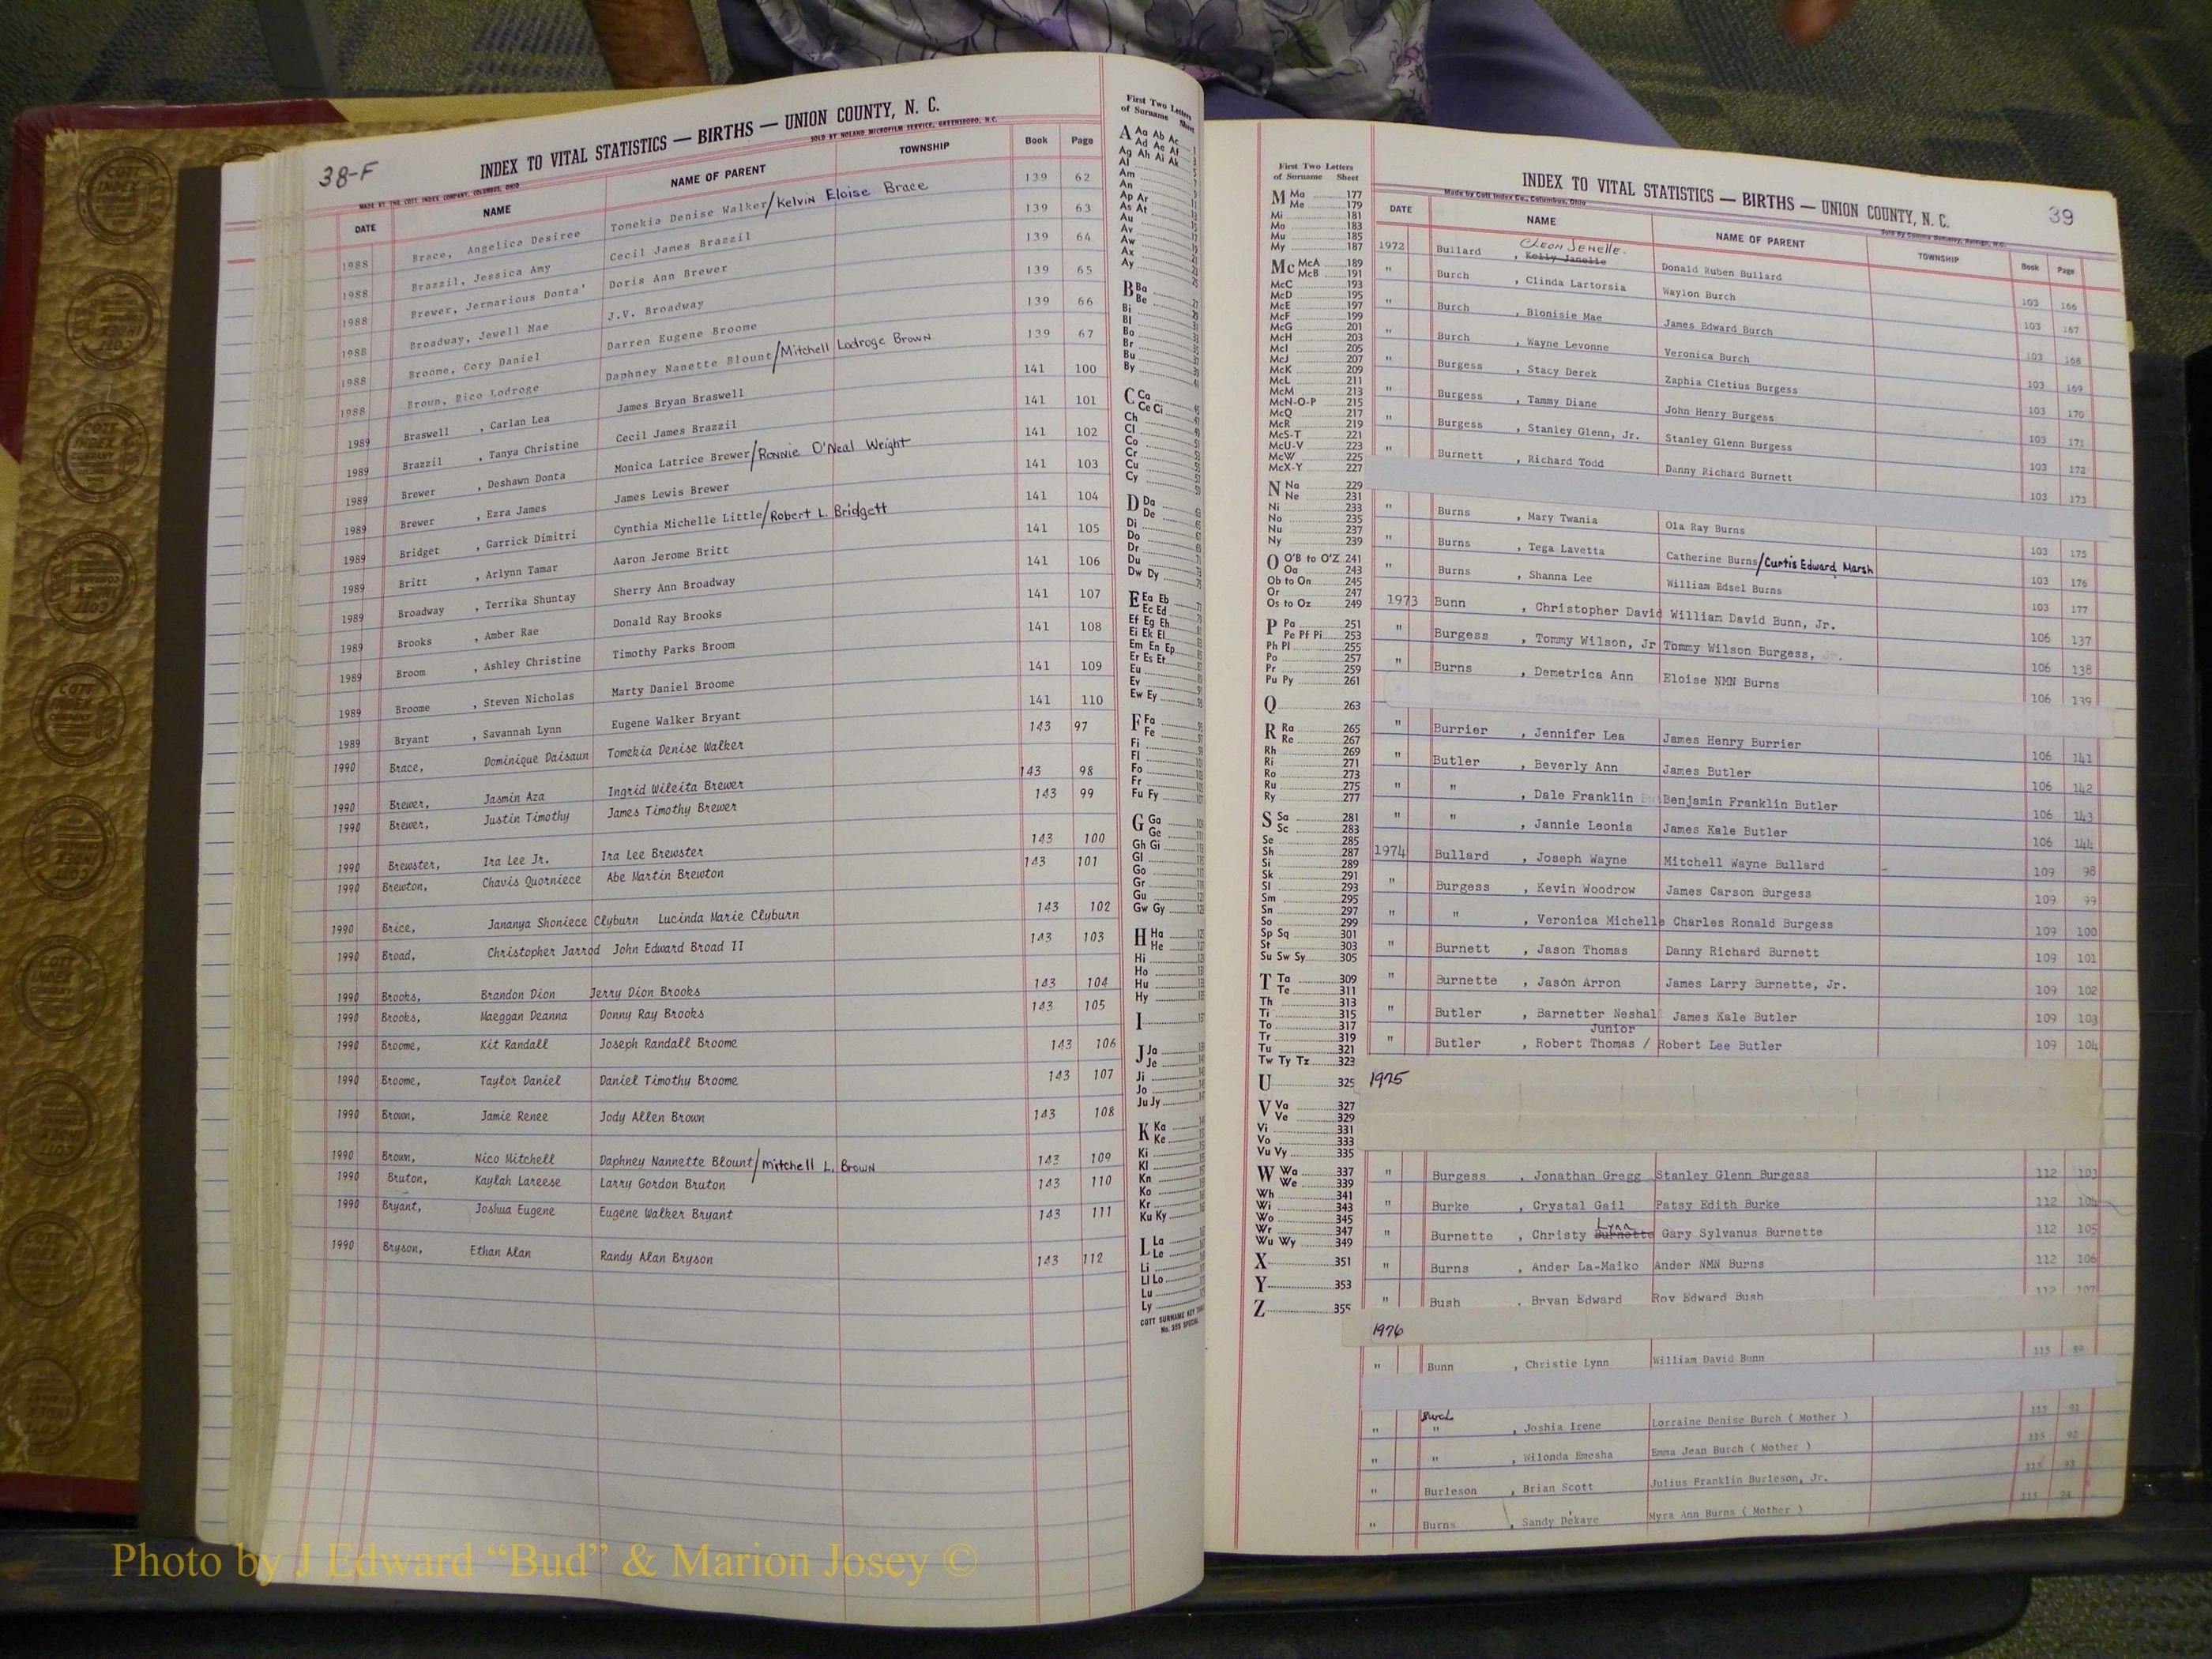 38-F
INDEX TO VITAL STATISTICS — BIRTHS — UNION COUNTY, N. C.
MADE BY THE COTT INDEX COMPANY, COLUMBUS, OHIO SOLD BY NOLAND MICROFILM SERVICE, GREENSBORO, N.C.
DATE NAME NAME OF PARENT TOWNSHIP Book Page
1988 Brace, Angelica Desiree Tomekia Denise Walker/Kelvin Eloise Brace 139 62
1988 Brazzil, Jessica Amy Cecil James Brazzil 139 63
1988 Brewer, Jermarious Donta' Doris Ann Brewer 139 64
1988 Broadway, Jewell Mae J.V. Broadway 139 65
1988 Broome, Cory Daniel Darren Eugene Broome 139 66
1988 Brown, Rico Lodroge Daphney Nanette Blount/Mitchell Lodroge Brown 139 67
1989 Braswell , Carlan Lea James Bryan Braswell 141 100
1989 Brazzil , Tanya Christine Cecil James Brazzil 141 101
1989 Brewer , Deshawn Donta Monica Latrice Brewer/Ronnie O'Neal Wright 141 102
1989 Brewer , Ezra James James Lewis Brewer 141 103
1989 Bridget , Garrick Dimitri Cynthia Michelle Little/Robert L. Bridgett 141 104
1989 Britt , Arlynn Tamar Aaron Jerome Britt 141 105
1989 Broadway , Terrika Shuntay Sherry Ann Broadway 141 106
1989 Brooks , Amber Rae Donald Ray Brooks 141 107
1989 Broom , Ashley Christine Timothy Parks Broom 141 108
1989 Broome , Steven Nicholas Marty Daniel Broome 141 109
1989 Bryant , Savannah Lynn Eugene Walker Bryant 141 110
1990 Brace, Dominique Daisaun Tomekia Denise Walker 143 97
1990 Brewer, Jasmin Aza Ingrid Wileita Brewer 143 98
1990 Brewer, Justin Timothy James Timothy Brewer 143 99
1990 Brewster, Ira Lee Jr. Ira Lee Brewster 143 100
1990 Brewton, Chavis Quorniece Abe Martin Brewton 143 101
1990 Brice, Jananya Shoniece Clyburn Lucinda Marie Clyburn 143 102
1990 Broad, Christopher Jarrod John Edward Broad II 143 103
1990 Brooks, Brandon Dion Jerry Dion Brooks 143 104
1990 Brooks, Maeggan Deanna Donny Ray Brooks 143 105
1990 Broome, Kit Randall Joseph Randall Broome 143 106
1990 Broome, Taylor Daniel Daniel Timothy Broome 143 107
1990 Brown, Jamie Renee Jody Allen Brown 143 108
1990 Brown, Nico Mitchell Daphney Nannette Blount/Mitchell L. Brown 143 109
1990 Bruton, Kaylah Lareese Larry Gordon Bruton 143 110
1990 Bryant, Joshua Eugene Eugene Walker Bryant 143 111
1990 Bryson, Ethan Alan Randy Alan Bryson 143 112
First Two Letters
of Surname Sheet
A Aa Ab Ac
Ad Ae Af
Ag Ah Ai Ak
Al
Am
An
Ap Ar
As At
Au
Av
Aw
Ax
Ay
B Ba
Be
Bi
Bl
Bo
Br
Bu
By
C Ca
Ce Ci
Ch
Cl
Co
Cr
Cu
Cy
D Da
De
Di
Do
Dr
Du
Dw Dy
E Ea Eb
Ec Ed
Ef Eg Eh
Ei Ek El
Em En Ep
Er Es Et
Eu
Ev
Ew Ey
F Fa
Fe
Fi
Fl
Fo
Fr
Fu Fy
G Ga
Ge
Gh Gi
Gl
Go
Gr
Gu
Gw Gy
H Ha
He
Hi
Ho
Hu
Hy
I
J Ja
Je
Ji
Jo
Ju Jy
K Ka
Ke
Ki
Kl
Kn
Ko
Kr
Ku Ky
L La
Le
Li
Ll Lo
Lu
Ly
COTT SURNAME KEY
No. 355 SPECIAL
First Two Letters
of Surname Sheet
M Ma 177
Me 179
Mi 181
Mo 183
Mu 185
My 187
Mc McA 189
McB 191
McC 193
McD 195
McE 197
McF 199
McG 201
McH 203
McI 205
McJ 207
McK 209
McL 211
McM 213
McN-O-P 215
McQ 217
McR 219
McS-T 221
McU-V 223
McW 225
McX-Y 227
N Na 229
Ne 231
Ni 233
No 235
Nu 237
Ny 239
O O'B to O'Z 241
Oa 243
Ob to On 245
Or 247
Os to Oz 249
P Pa 251
Pe Pf Pi 253
Ph Pl 255
Po 257
Pr 259
Pu Py 261
Q 263
R Ra 265
Re 267
Rh 269
Ri 271
Ro 273
Ru 275
Ry 277
S Sa 281
Sc 283
Se 285
Sh 287
Si 289
Sk 291
Sl 293
Sm 295
Sn 297
So 299
Sp Sq 301
St 303
Su Sw Sy 305
T Ta 309
Te 311
Th 313
Ti 315
To 317
Tr 319
Tu 321
Tw Ty Tz 323
U 325
V Va 327
Ve 329
Vi 331
Vo 333
Vu Vy 335
W Wa 337
We 339
Wh 341
Wi 343
Wo 345
Wr 347
Wu Wy 349
X 351
Y 353
Z 355
INDEX TO VITAL STATISTICS — BIRTHS — UNION COUNTY, N. C. 39
Made by Cott Index Co., Columbus, Ohio
DATE NAME NAME OF PARENT TOWNSHIP Book Page
Cleon Jenelle.
1972 Bullard , Kelly Janelle Donald Ruben Bullard 103 166
" Burch , Clinda Lartorsia Waylon Burch 103 167
" Burch , Bionisie Mae James Edward Burch 103 168
" Burch , Wayne Levonne Veronica Burch 103 169
" Burgess , Stacy Derek Zaphia Cletius Burgess 103 170
" Burgess , Tammy Diane John Henry Burgess 103 171
" Burgess , Stanley Glenn, Jr. Stanley Glenn Burgess 103 172
" Burnett , Richard Todd Danny Richard Burnett 103 173
" Burns , Mary Twania Ola Ray Burns 103 175
" Burns , Tega Lavetta Catherine Burns/Curtis Edward Marsh 103 176
" Burns , Shanna Lee William Edsel Burns 103 177
1973 Bunn , Christopher David William David Bunn, Jr. 106 137
" Burgess , Tommy Wilson, Jr Tommy Wilson Burgess, 106 138
" Burns , Demetrica Ann Eloise NMN Burns 106 139
" Burrier , Jennifer Lea James Henry Burrier 106 141
" Butler , Beverly Ann James Butler 106 142
" " , Dale Franklin Benjamin Franklin Butler 106 143
" " , Jannie Leonia James Kale Butler 106 144
1974 Bullard , Joseph Wayne Mitchell Wayne Bullard 109 98
" Burgess , Kevin Woodrow James Carson Burgess 109 99
" " , Veronica Michelle Charles Ronald Burgess 109 100
" Burnett , Jason Thomas Danny Richard Burnett 109 101
" Burnette , Jason Arron James Larry Burnette, Jr. 109 102
" Butler , Barnetter Neshal James Kale Butler 109 103
Junior
" Butler , Robert Thomas / Robert Lee Butler 109 104
1975
" Burgess , Jonathan Gregg Stanley Glenn Burgess 112 103
" Burke , Crystal Gail Patsy Edith Burke 112 104
Lynn
" Burnette , Christy Burnette Gary Sylvanus Burnette 112 105
" Burns , Ander La-Maiko Ander NMN Burns 112 106
" Bush , Bryan Edward Roy Edward Bush 112 107
1976
" Bunn , Christie Lynn William David Bunn 115 89
Burch
" " , Joshia Irene Lorraine Denise Burch ( Mother ) 115 91
" " , Wilonda Emesha Emma Jean Burch ( Mother ) 115 92
" Burleson , Brian Scott Julius Franklin Burleson, Jr. 115 93
" Burns , Sandy Dekaye Myra Ann Burns ( Mother ) 115
Photo by J Edward “Bud” & Marion Josey ©